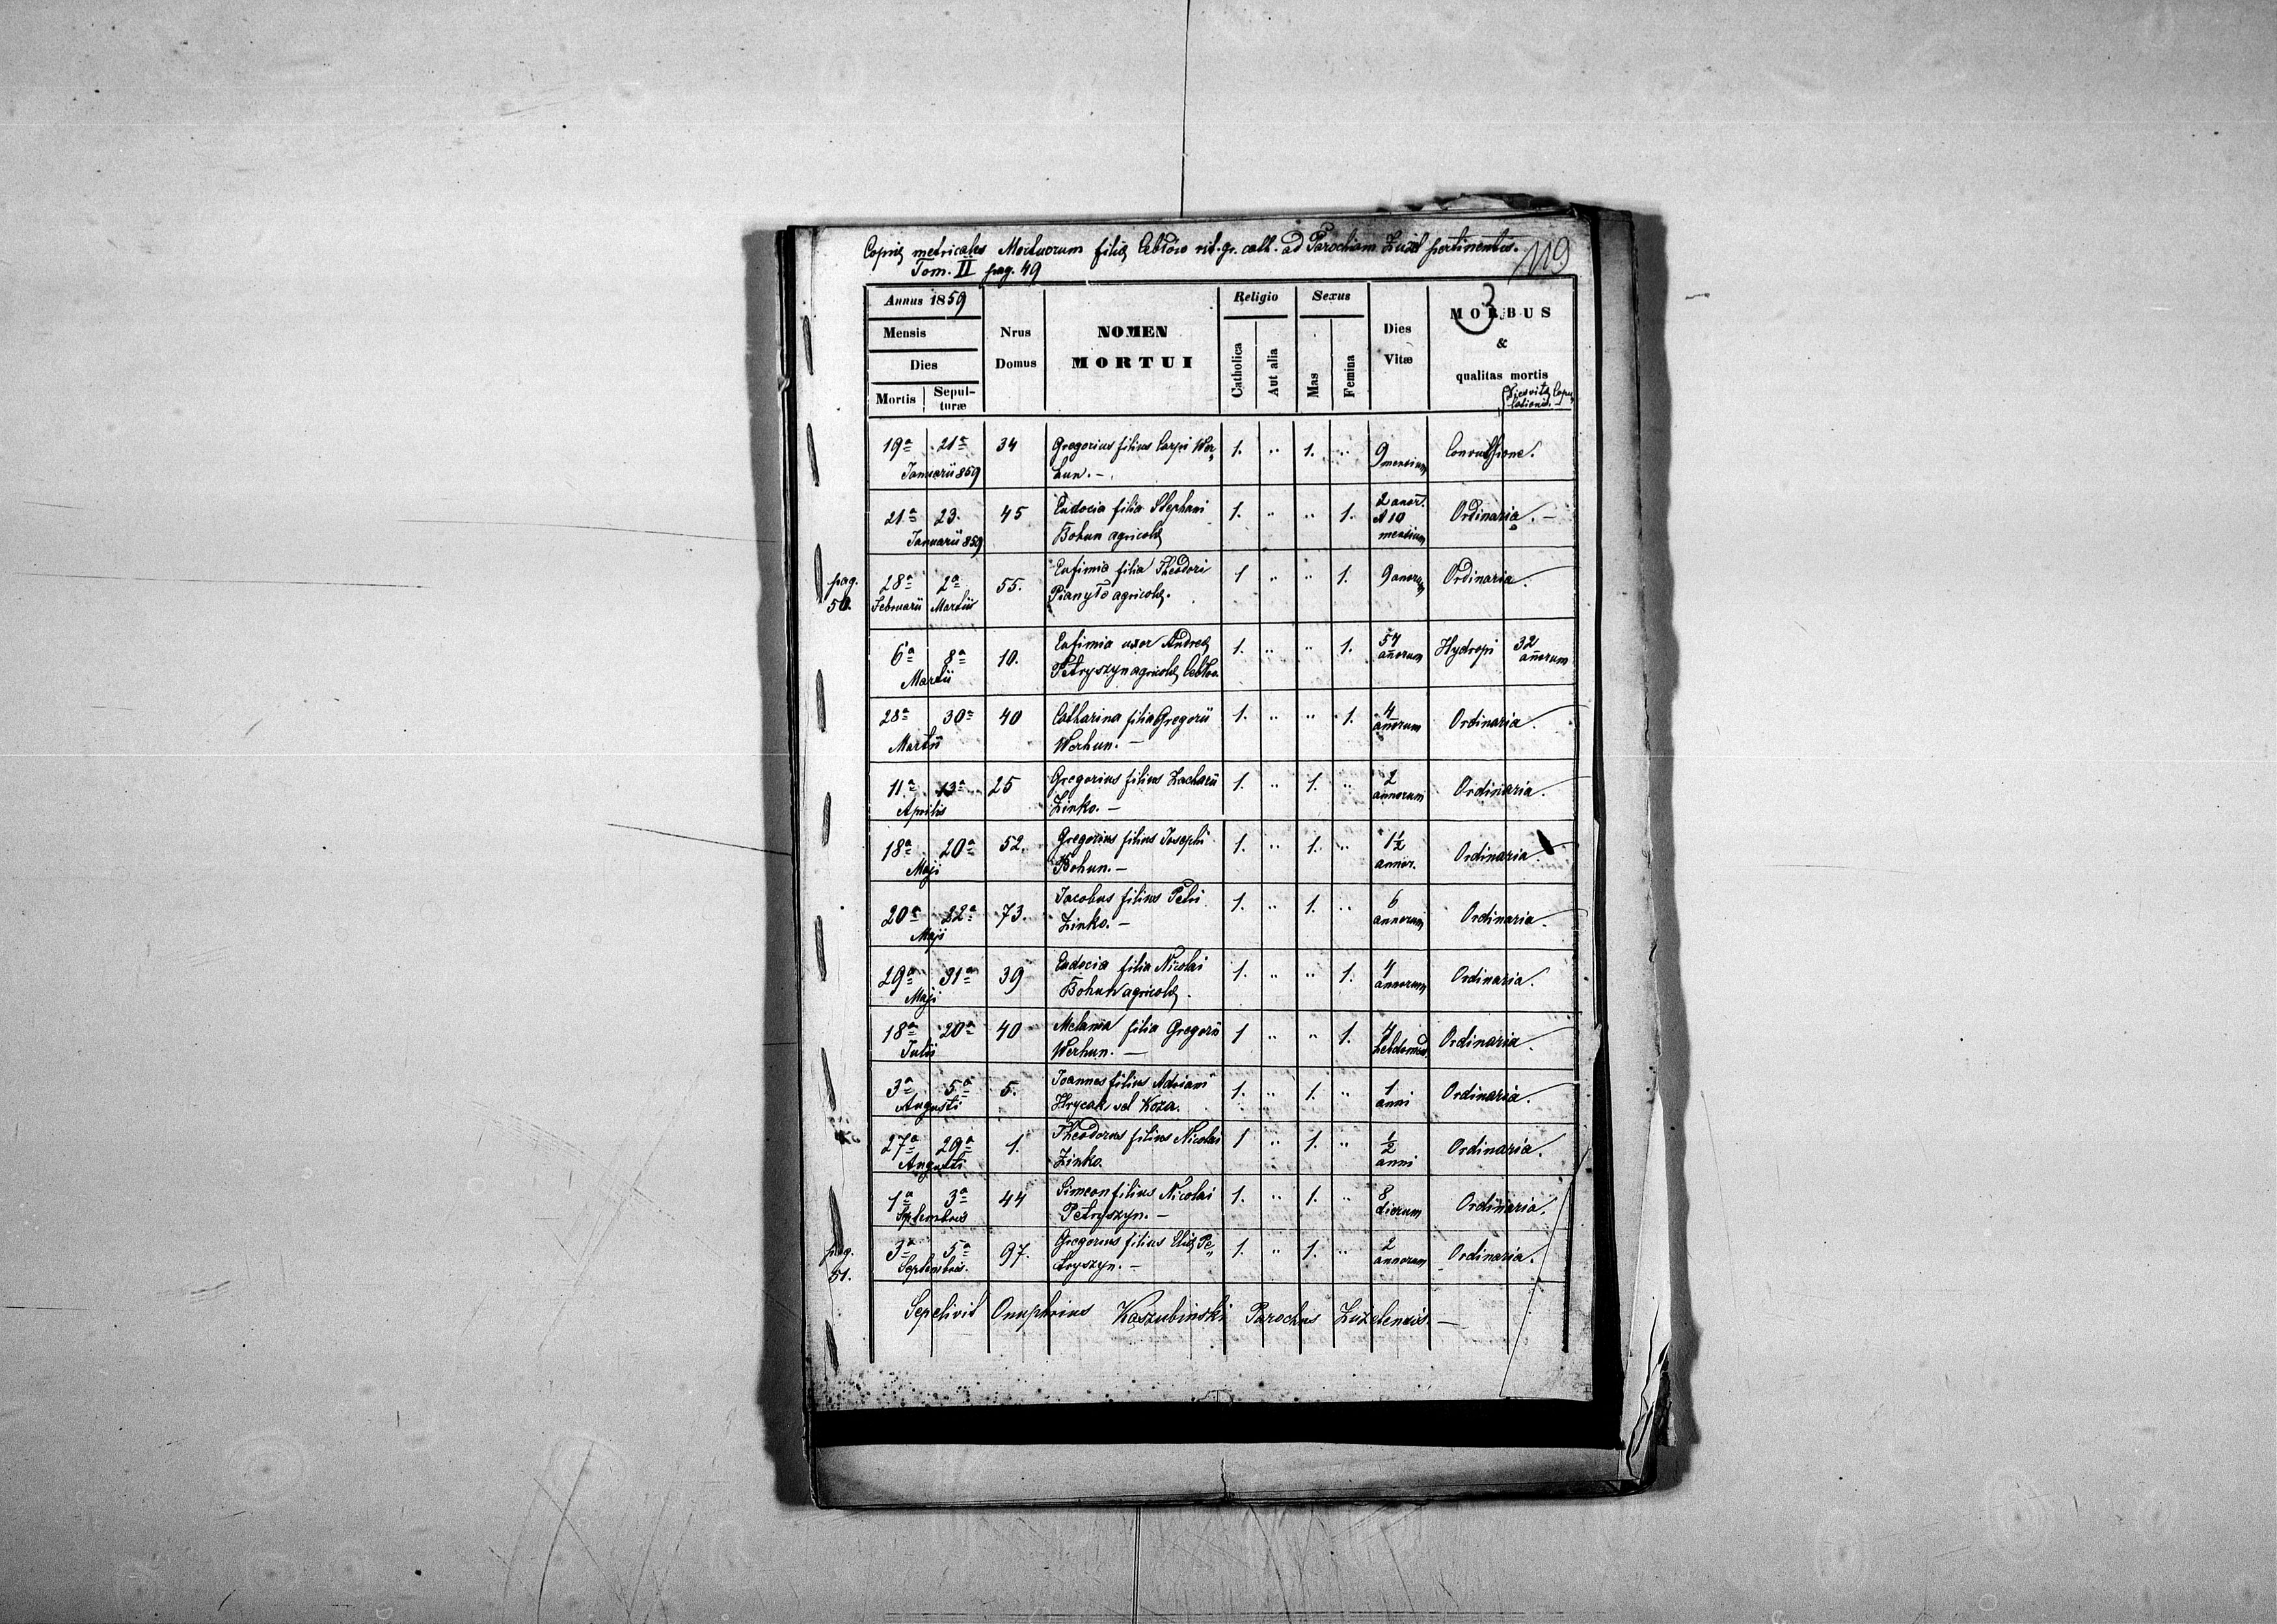 Copiæ metricales Mortuorum filiæ Cebłów rit. gr. cath. ad Parochiam Żużel pertinentes.
Tom. II pag. 49
119
3
Annus 1859
Mensis
Dies
Mortis Sepul-
turæ
Nrus
Domus
NOMEN
MORTUI
Religio
Catholica Aut alia
Sexus
Mas Femina
Dies
Vitæ
MORBUS
&
qualitas mortis
Dies vitæ Copu„
lationis.
19ª 21ª 34 Gregorius filius Carpi Wer„ 1. „ 1. „ 9 Convulsione.
Januarii 859 hun. – mensium
21ª 23. 45 Eudocia filia Stephani 1. „ „ 1. 2 anor. Ordinaria. –
Januarii 859 Bohun agricolæ et 10
mensium
pag.
50.
28ª 2ª 55. Eufimia filia Theodori 1 „ „ 1. 9 anorum Ordinaria.
Februarii Martii Pianyło agricolæ.
6ª 8ª 10. Eufimia uxor Andreæ 1. „ „ 1. 54 Hydropi 32
Martii Petryszyn agricolæ Cebłow. anorum anorum
28ª 30ª 40 Catharina filia Gregorii 1. „ „ 1. 4 Ordinaria.
Martii Werhun. – anorum
11ª 13ª 25 Gregorius filius Zacharii 1. „ 1. „ 2 Ordinaria.
Aprilis Zinko. – annorum
18ª 20ª 52. Gregorius filius Josephi 1. „ 1. „ 1½ Ordinaria.
Maji Bohun. – annor.
20ª 22ª 73. Jacobus filius Petri 1. „ 1. „ 6 Ordinaria.
Maji Zinko. – annorum
29ª 31ª 39 Eudocia filia Nicolai 1. „ „ 1. 4 Ordinaria.
Maji Bohun agricolæ. annorum
18ª 20ª 40 Melania filia Gregorii 1 „ „ 1. 4 Ordinaria.
Julii Werhun. – hebdomad.
3ª 5ª 5. Joannes filius Adriani 1. „ 1. „ 1 Ordinaria.
Augusti Hrycak vel Koza. anni
27ª 29ª 1. Theodorus filius Nicolai 1 „ 1. „ ½ Ordinaria.
Augusti Zinko. anni
1ª 3ª 44 Simeon filius Nicolai 1. „ 1. „ 8 Ordinaria.
Septembris Petryszyn. – dierum
pag.
51.
3ª 5ª 97. Gregorius filius Eliæ Pe„ 1. „ 1. „ 2 Ordinaria.
Septembris. tryszyn. – annorum
Sepelivit Onuphrius Kaszubinski Parochus Żużelensis. –